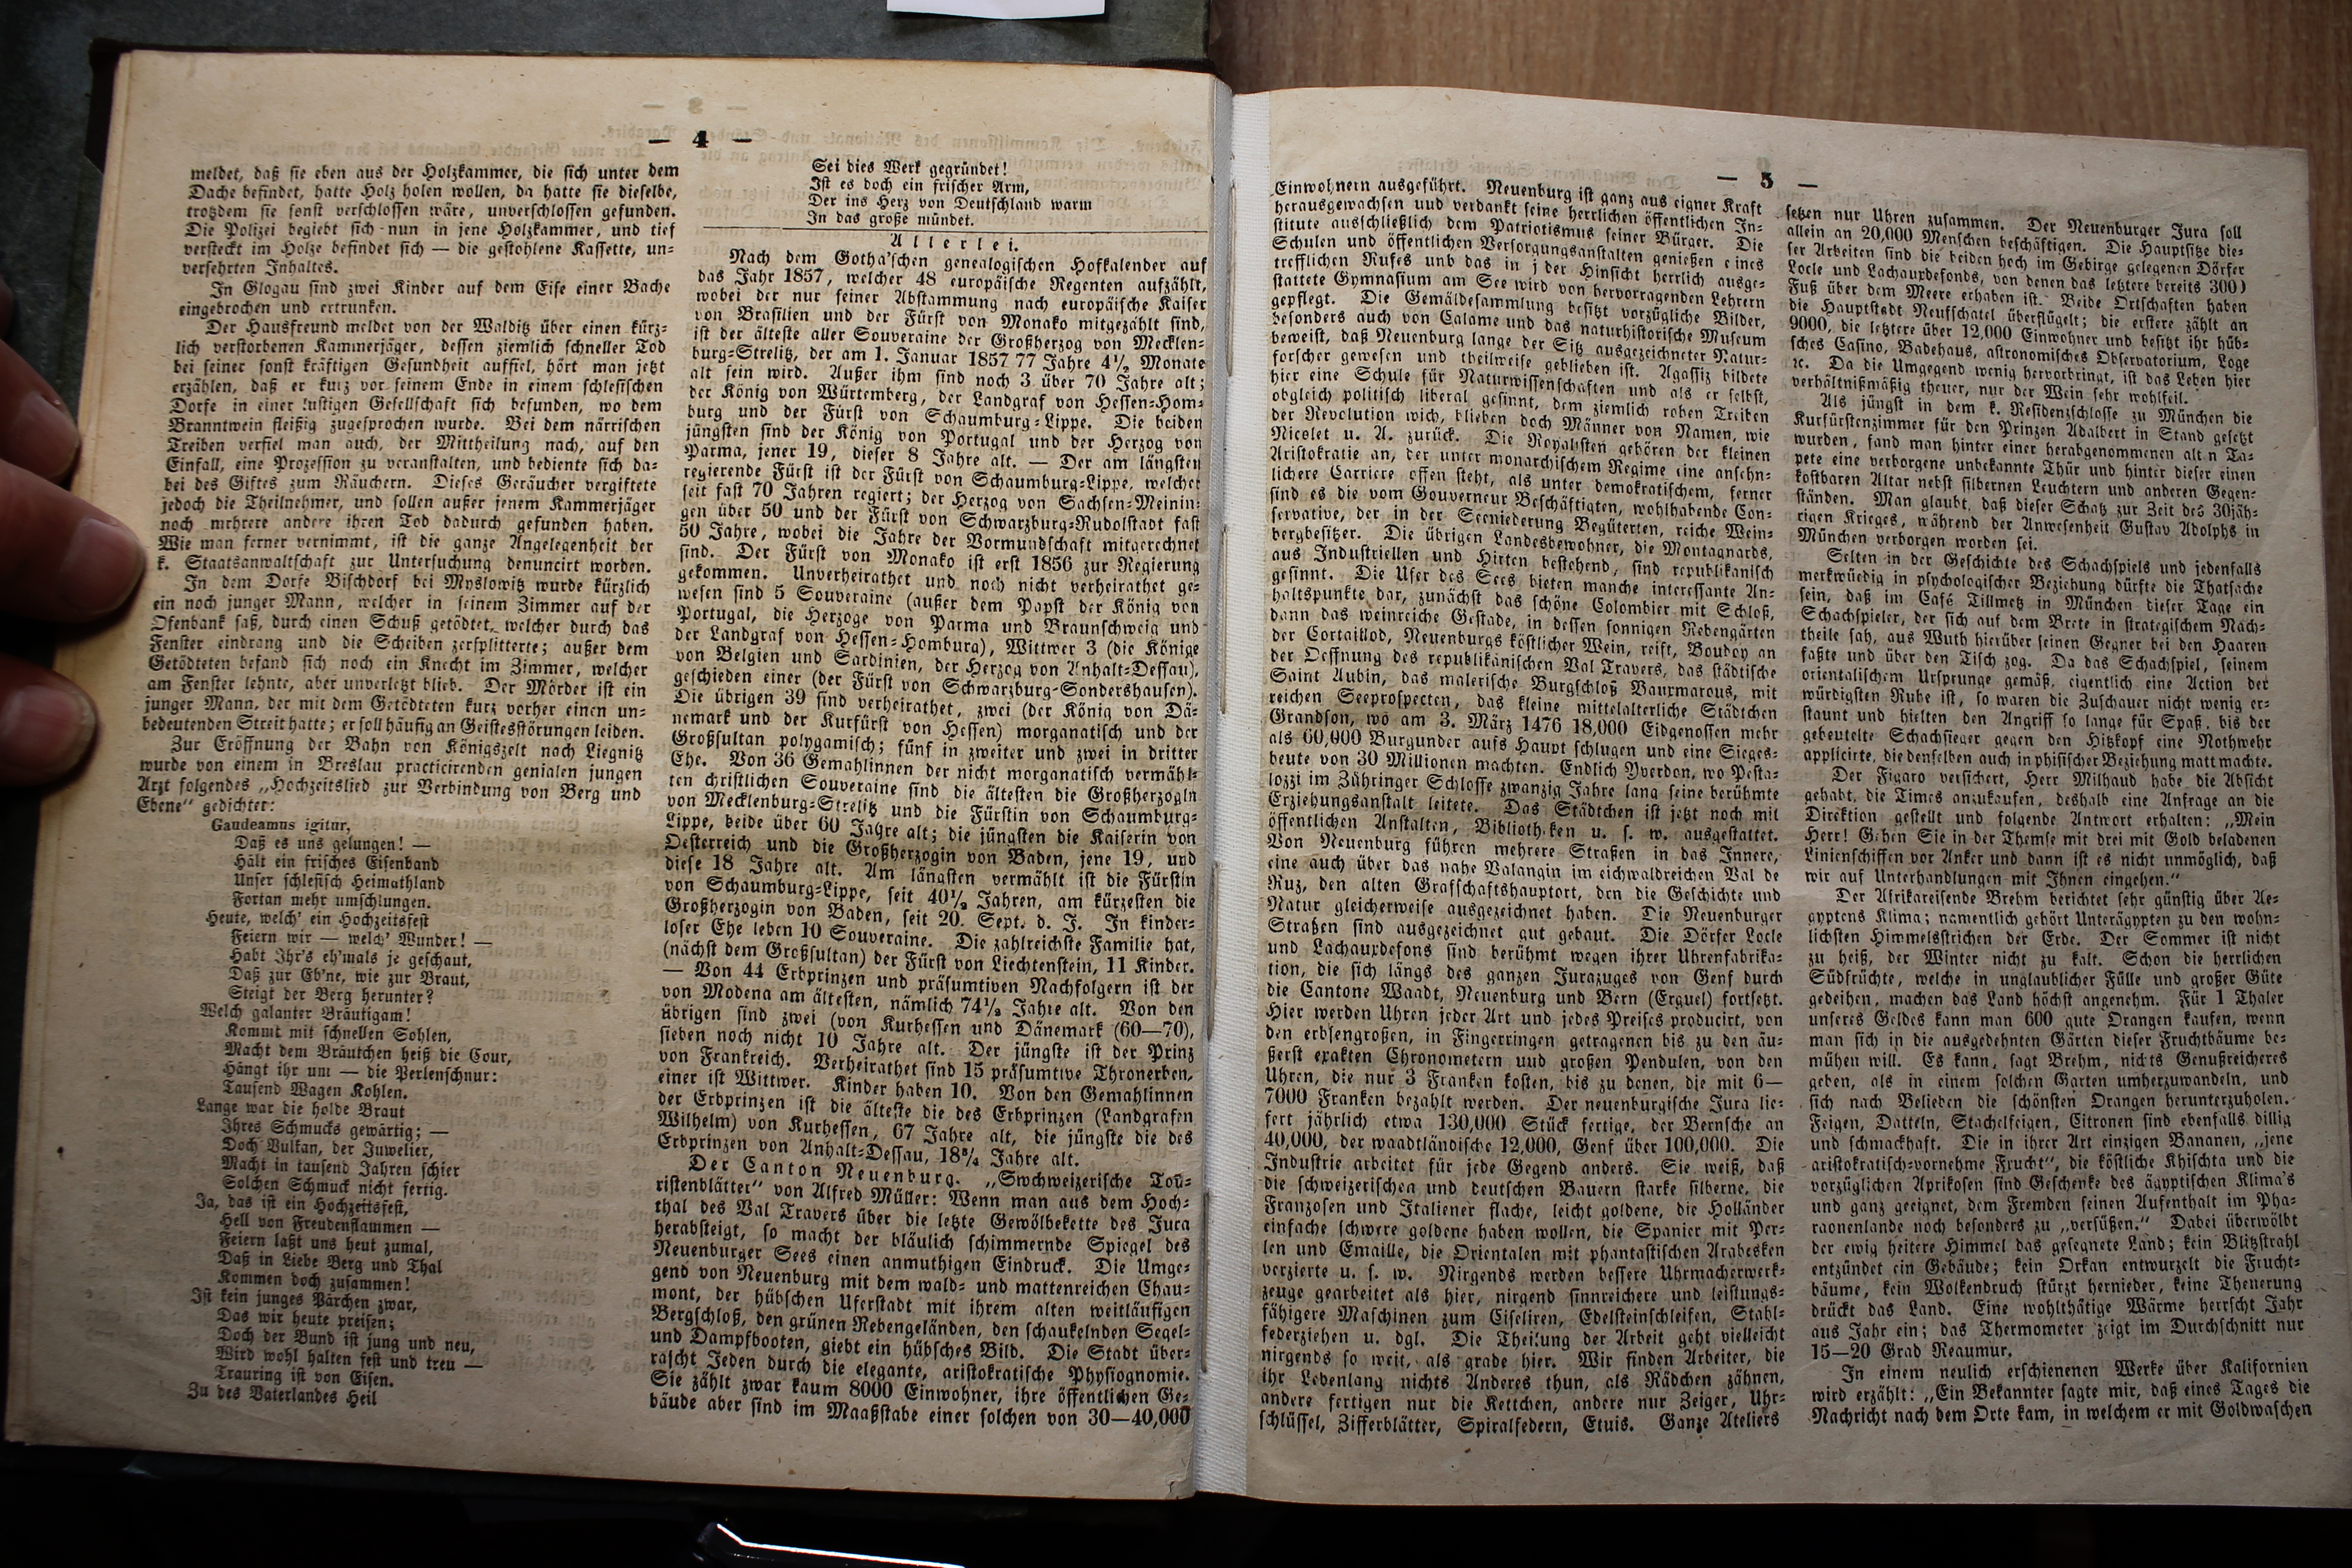 — 4 —
meldet, daß sie eben aus der Holzkammer, die sich unter dem
Dache befindet, hatte Holz holen wollen, da hatte sie dieselbe,
trotzdem sie sonst verschlossen wäre, unverschlossen gefunden.
Die Polizei begiebt sich nun in jene Holzkammer, und tief
versteckt im Holze befindet sich — die gestohlene Kassette, un-
versehrten Inhaltes.
In Glogau sind zwei Kinder auf dem Eise einer Bache
eingebrochen und ertrunken.
Der Hausfreund meldet von der Walditz über einen kürz-
lich verstorbenen Kammerjäger, dessen ziemlich schneller Tod
bei seiner sonst kräftigen Gesundheit auffiel, hört man jetzt
erzählen, daß er kurz vor seinem Ende in einem schlesischen
Dorfe in einer lustigen Gesellschaft sich befunden, wo dem
Branntwein fleißig zugesprochen wurde. Bei dem närrischen
Treiben verfiel man auch, der Mittheilung nach, auf den
Einfall, eine Prozession zu veranstalten, und bediente sich da-
bei des Giftes zum Räuchern. Dieses Geräucher vergiftete
jedoch die Theilnehmer, und sollen außer jenem Kammerjäger
noch mehrere andere ihren Tod dadurch gefunden haben.
Wie man ferner vernimmt, ist die ganze Angelegenheit der
k. Staatsanwaltschaft zur Untersuchung denuncirt worden.
In dem Dorfe Bischdorf bei Myslowitz wurde kürzlich
ein noch junger Mann, welcher in seinem Zimmer auf der
Ofenbank saß, durch einen Schuß getödtet, welcher durch das
Fenster eindrang und die Scheiben zersplitterte; außer dem
Getödteten befand sich noch ein Knecht im Zimmer, welcher
am Fenster lehnte, aber unverletzt blieb. Der Mörder ist ein
junger Mann, der mit dem Getödteten kurz vorher einen un-
bedeutenden Streit hatte; er soll häufig an Geistesstörungen leiden.
Zur Eröffnung der Bahn von Königszelt nach Liegnitz
wurde von einem in Breslau practicirenden genialen jungen
Arzt folgendes „Hochzeitslied zur Verbindung von Berg und
Ebene“ gedichtet:
Gaudeamus igitur,
Daß es uns gelungen! —
Hält ein frisches Eisenband
Unser schlesisch Heimathland
Fortan mehr umschlungen.
Heute, welch' ein Hochzeitsfest
Feiern wir — welch' Wunder! —
Habt Ihr's eh'mals je geschaut,
Daß zur Eb'ne, wie zur Braut,
Steigt der Berg herunter?
Welch galanter Bräutigam!
Kommt mit schnellen Sohlen,
Macht dem Bräutchen heiß die Cour,
Hängt ihr um — die Perlenschnur:
Tausend Wagen Kohlen.
Lange war die holde Braut
Ihres Schmucks gewärtig; —
Doch Vulkan, der Juwelier,
Macht in tausend Jahren schier
Solchen Schmuck nicht fertig.
Ja, das ist ein Hochzeitsfest,
Hell von Freudenflammen —
Feiern laßt uns heut zumal,
Daß in Liebe Berg und Thal
Kommen doch zusammen!
Ist kein junges Pärchen zwar,
Das wir heute preisen;
Doch der Bund ist jung und neu,
Wird wohl halten fest und treu —
Trauring ist von Eisen.
Zu des Vaterlandes Heil
Sei dies Werk gegründet!
Ist es doch ein frischer Arm,
Der ins Herz von Deutschland warm
In das große mündet.
Allerlei.
Nach dem Gotha'schen genealogischen Hofkalender auf
das Jahr 1857, welcher 48 europäische Regenten aufzählt,
wobei der nur seiner Abstammung nach europäische Kaiser
von Brasilien und der Fürst von Monako mitgezählt sind,
ist der älteste aller Souveraine der Großherzog von Mecklen-
burg-Strelitz, der am 1. Januar 1857 77 Jahre 4½ Monate
alt sein wird. Außer ihm sind noch 3 über 70 Jahre alt;
der König von Würtemberg, der Landgraf von Hessen-Hom-
burg und der Fürst von Schaumburg-Lippe. Die beiden
jüngsten sind der König von Portugal und der Herzog von
Parma, jener 19, dieser 8 Jahre alt. — Der am längsten
regierende Fürst ist der Fürst von Schaumburg-Lippe, welcher
seit fast 70 Jahren regiert; der Herzog von Sachsen-Meinin-
gen über 50 und der Fürst von Schwarzburg-Rudolstadt fast
50 Jahre, wobei die Jahre der Vormundschaft mitgerechnet
sind. Der Fürst von Monako ist erst 1856 zur Regierung
gekommen. Unverheirathet und noch nicht verheirathet ge-
wesen sind 5 Souveraine (außer dem Papst der König von
Portugal, die Herzoge von Parma und Braunschweig und
der Landgraf von Hessen-Homburg), Wittwer 3 (die Könige
von Belgien und Sardinien, der Herzog von Anhalt-Dessau),
geschieden einer (der Fürst von Schwarzburg-Sondershausen).
Die übrigen 39 sind verheirathet, zwei (der König von Dä-
nemark und der Kurfürst von Hessen) morganatisch und der
Großsultan polygamisch; fünf in zweiter und zwei in dritter
Ehe. Von 36 Gemahlinnen der nicht morganatisch vermähl-
ten christlichen Souveraine sind die ältesten die Großherzogin
von Mecklenburg-Strelitz und die Fürstin von Schaumburg-
Lippe, beide über 60 Jahre alt; die jüngsten die Kaiserin von
Oesterreich und die Großherzogin von Baden, jene 19, und
diese 18 Jahre alt. Am längsten vermählt ist die Fürstin
von Schaumburg-Lippe, seit 40½ Jahren, am kürzesten die
Großherzogin von Baden, seit 20. Sept. d. J. In kinder-
loser Ehe leben 10 Souveraine. Die zahlreichste Familie hat,
(nächst dem Großsultan) der Fürst von Liechtenstein, 11 Kinder.
— Von 44 Erbprinzen und präsumtiven Nachfolgern ist der
von Modena am ältesten, nämlich 74½ Jahre alt. Von den
übrigen sind zwei (von Kurhessen und Dänemark (60—70),
sieben noch nicht 10 Jahre alt. Der jüngste ist der Prinz
von Frankreich. Verheirathet sind 15 präsumtive Thronerben,
einer ist Wittwer. Kinder haben 10. Von den Gemahlinnen
der Erbprinzen ist die älteste die des Erbprinzen (Landgrafen
Wilhelm) von Kurhessen, 67 Jahre alt, die jüngste die des
Erbprinzen von Anhalt-Dessau, 18¾ Jahre alt.
Der Canton Neuenburg. „Swchweizerische Tou-
ristenblätter“ von Alfred Müller: Wenn man aus dem Hoch-
thal des Val Travers über die letzte Gewölbekette des Jura
herabsteigt, so macht der bläulich schimmernde Spiegel des
Neuenburger Sees einen anmuthigen Eindruck. Die Umge-
gend von Neuenburg mit dem wald- und mattenreichen Chau-
mont, der hübschen Uferstadt mit ihrem alten weitläufigen
Bergschloß, den grünen Rebengeländen, den schaukelnden Segel-
und Dampfbooten, giebt ein hübsches Bild. Die Stadt über-
rascht Jeden durch die elegante, aristokratische Physiognomie.
Sie zählt zwar kaum 8000 Einwohner, ihre öffentlichen Ge-
bäude aber sind im Maaßstabe einer solchen von 30—40,000
— 5 —
Einwohnern ausgeführt. Neuenburg ist ganz aus eigner Kraft
herausgewachsen und verdankt seine herrlichen öffentlichen In-
stitute ausschließlich dem Patriotismus seiner Bürger. Die
Schulen und öffentlichen Versorgungsanstalten genießen eines
trefflichen Rufes und das in j der Hinsicht herrlich ausge-
stattete Gymnasium am See wird von hervorragenden Lehrern
gepflegt. Die Gemäldesammlung besitzt vorzügliche Bilder,
besonders auch von Calame und das naturhistorische Museum
beweist, daß Neuenburg lange der Sitz ausgezeichneter Natur-
forscher gewesen und theilweise geblieben ist. Agassiz bildete
hier eine Schule für Naturwissenschaften und als er selbst,
obgleich politisch liberal gesinnt, dem ziemlich rohen Treiben
der Revolution wich, blieben doch Männer von Namen, wie
Nicolet u. A. zurück. Die Royalisten gehören der kleinen
Aristokratie an, der unter monarchischem Regime eine ansehn-
lichere Carriere offen steht, als unter demokratischem, ferner
sind es die vom Gouverneur Beschäftigten, wohlhabende Con-
servative, der in der Seeniederung Begüterten, reiche Wein-
bergbesitzer. Die übrigen Landesbewohner, die Montagnards,
aus Industriellen und Hirten bestehend, sind republikanisch
gesinnt. Die Ufer des Sees bieten manche interessante An-
haltspunkte dar, zunächst das schöne Colombier mit Schloß,
dann das weinreiche Gestade, in dessen sonnigen Rebengärten
der Cortaillod, Neuenburgs köstlicher Wein, reift, Boudoy an
der Oeffnung des republikanischen Val Travers, das städtische
Saint Aubin, das malerische Burgschloß Vauxmarcus, mit
reichen Seeprospecten, das kleine mittelalterliche Städtchen
Grandson, wo am 3. März 1476 18,000 Eidgenossen mehr
als 60,000 Burgunder aufs Haupt schlugen und eine Sieges-
beute von 30 Millionen machten. Endlich Yverdon, wo Pesta-
lozzi im Zühringer Schlosse zwanzig Jahre lang seine berühmte
Erziehungsanstalt leitete. Das Städtchen ist jetzt noch mit
öffentlichen Anstalten, Biblioth.ken u. s. w. ausgestattet.
Von Neuenburg führen mehrere Straßen in das Innere,
eine auch über das nahe Valangin im eichwaldreichen Val de
Ruz, den alten Grafschaftshauptort, den die Geschichte und
Natur gleicherweise ausgezeichnet haben. Die Neuenburger
Straßen sind ausgezeichnet gut gebaut. Die Dörfer Locle
und Lachauxdefons sind berühmt wegen ihrer Uhrenfabrika-
tion, die sich längs des ganzen Jurazuges von Genf durch
die Cantone Waadt, Neuenburg und Bern (Erguel) fortsetzt.
Hier werden Uhren jeder Art und jedes Preises producirt, von
den erbsengroßen, in Fingerringen getragenen bis zu den äu-
ßerst exakten Chronometern und großen Pendulen, von den
Uhren, die nur 3 Franken kosten, bis zu denen, die mit 6—
7000 Franken bezahlt werden. Der neuenburgische Jura lie-
fert jährlich etwa 130,000 Stück fertige, der Bernsche an
40,000, der waadtländische 12,000, Genf über 100,000. Die
Industrie arbeitet für jede Gegend anders. Sie weiß, daß
die schweizerischen und deutschen Bauern starke silberne, die
Franzosen und Italiener flache, leicht goldene, die Holländer
einfache schwere goldene haben wollen, die Spanier mit Per-
len und Emaille, die Orientalen mit phantastischen Arabesken
verzierte u. s. w. Nirgends werden bessere Uhrmacherwerk-
zeuge gearbeitet als hier, nirgend sinnreichere und leistungs-
fähigere Maschinen zum Ciseliren, Edelsteinschleifen, Stahl-
federziehen u. dgl. Die Theilung der Arbeit geht vielleicht
nirgends so weit, als grade hier. Wir finden Arbeiter, die
ihr Lebenlang nichts Anderes thun, als Rädchen zähnen,
andere fertigen nur die Kettchen, andere nur Zeiger, Uhr-
schlüssel, Zifferblätter, Spiralfedern, Etuis. Ganze Ateliers
setzen nur Uhren zusammen. Der Neuenburger Jura soll
allein an 20,000 Menschen beschäftigen. Die Hauptsitze die-
ser Arbeiten sind die beiden hoch im Gebirge gelegenen Dörfer
Locle und Lachauxdefonds, von denen das letztere bereits 300)
Fuß über dem Meere erhaben ist. Beide Ortschaften haben
die Hauptstadt Neufschatel überflügelt; die erstere zählt an
9000, die letztere über 12,000 Einwohner und besitzt ihr hüb-
sches Casino, Badehaus, astronomisches Observatorium, Loge
ꝛc. Da die Umgegend wenig hervorbringt, ist das Leben hier
verhältnißmäßig theuer, nur der Wein sehr wohlfeil.
Als jüngst in dem k. Residenzschlosse zu München die
Kurfürstenzimmer für den Prinzen Adalbert in Stand gesetzt
wurden, fand man hinter einer herabgenommenen alt n Ta-
pete eine verborgene unbekannte Thür und hinter dieser einen
kostbaren Altar nebst silbernen Leuchtern und anderen Gegen-
ständen. Man glaubt, daß dieser Schatz zur Zeit des 30jäh-
rigen Krieges, während der Anwesenheit Gustav Adolphs in
München verborgen worden sei.
Selten in der Geschichte des Schachspiels und jedenfalls
merkwüedig in psychologischer Beziehung dürfte die Thatsache
sein, daß im Café Tillmetz in München dieser Tage ein
Schachspieler, der sich auf dem Brete in strategischem Nach-
theile sah, aus Wuth hierüber seinen Gegner bei den Haaren
faßte und über den Tisch zog. Da das Schachspiel, seinem
orientalischem Ursprunge gemäß, eigentlich eine Action der
würdigsten Ruhe ist, so waren die Zuschauer nicht wenig er-
staunt und hielten den Angriff so lange für Spaß, bis der
gebeutelte Schachsieger gegen den Hitzkopf eine Nothwehr
applicirte, die denselben auch in phisischer Beziehung matt machte.
Der Figaro versichert, Herr Milhaud habe die Absicht
gehabt, die Times anzukaufen, deshalb eine Anfrage an die
Direktion gestellt und folgende Antwort erhalten: „Mein
Herr! Gehen Sie in der Themse mit drei mit Gold beladenen
Linienschiffen vor Anker und dann ist es nicht unmöglich, daß
wir auf Unterhandlungen mit Ihnen eingehen.“
Der Afrikareisende Brehm berichtet sehr günstig über Ae-
gyptens Klima; namentlich gehört Unterägypten zu den wohn-
lichsten Himmelsstrichen der Erde. Der Sommer ist nicht
zu heiß, der Winter nicht zu kalt. Schon die herrlichen
Südfrüchte, welche in unglaublicher Fülle und großer Güte
gedeihen, machen das Land höchst angenehm. Für 1 Thaler
unseres Geldes kann man 600 gute Orangen kaufen, wenn
man sich in die ausgedehnten Gärten dieser Fruchtbäume be-
mühen will. Es kann, sagt Brehm, nichts Genußreicheres
geben, als in einem solchen Garten umherzuwandeln, und
sich nach Belieben die schönsten Orangen herunterzuholen.
Feigen, Datteln, Stachelfeigen, Citronen sind ebenfalls billig
und schmackhaft. Die in ihrer Art einzigen Bananen, „jene
aristokratisch-vornehme Frucht“, die köstliche Khischta und die
vorzüglichen Aprikosen sind Geschenke des ägyptischen Klima's
und ganz geeignet, dem Fremden seinen Aufenthalt im Pha-
raonenlande noch besonders zu „versüßen.“ Dabei überwölbt
der ewig heitere Himmel das gesegnete Land; kein Blitzstrahl
entzündet ein Gebäude; kein Orkan entwurzelt die Frucht-
bäume, kein Wolkendruch stürzt hernieder, keine Theuerung
drückt das Land. Eine wohlthätige Wärme herrscht Jahr
aus Jahr ein; das Thermometer zeigt im Durchschnitt nur
15—20 Grad Reaumur.
In einem neulich erschienenen Werke über Kalifornien
wird erzählt: „Ein Bekannter sagte mir, daß eines Tages die
Nachricht nach dem Orte kam, in welchem er mit Goldwaschen